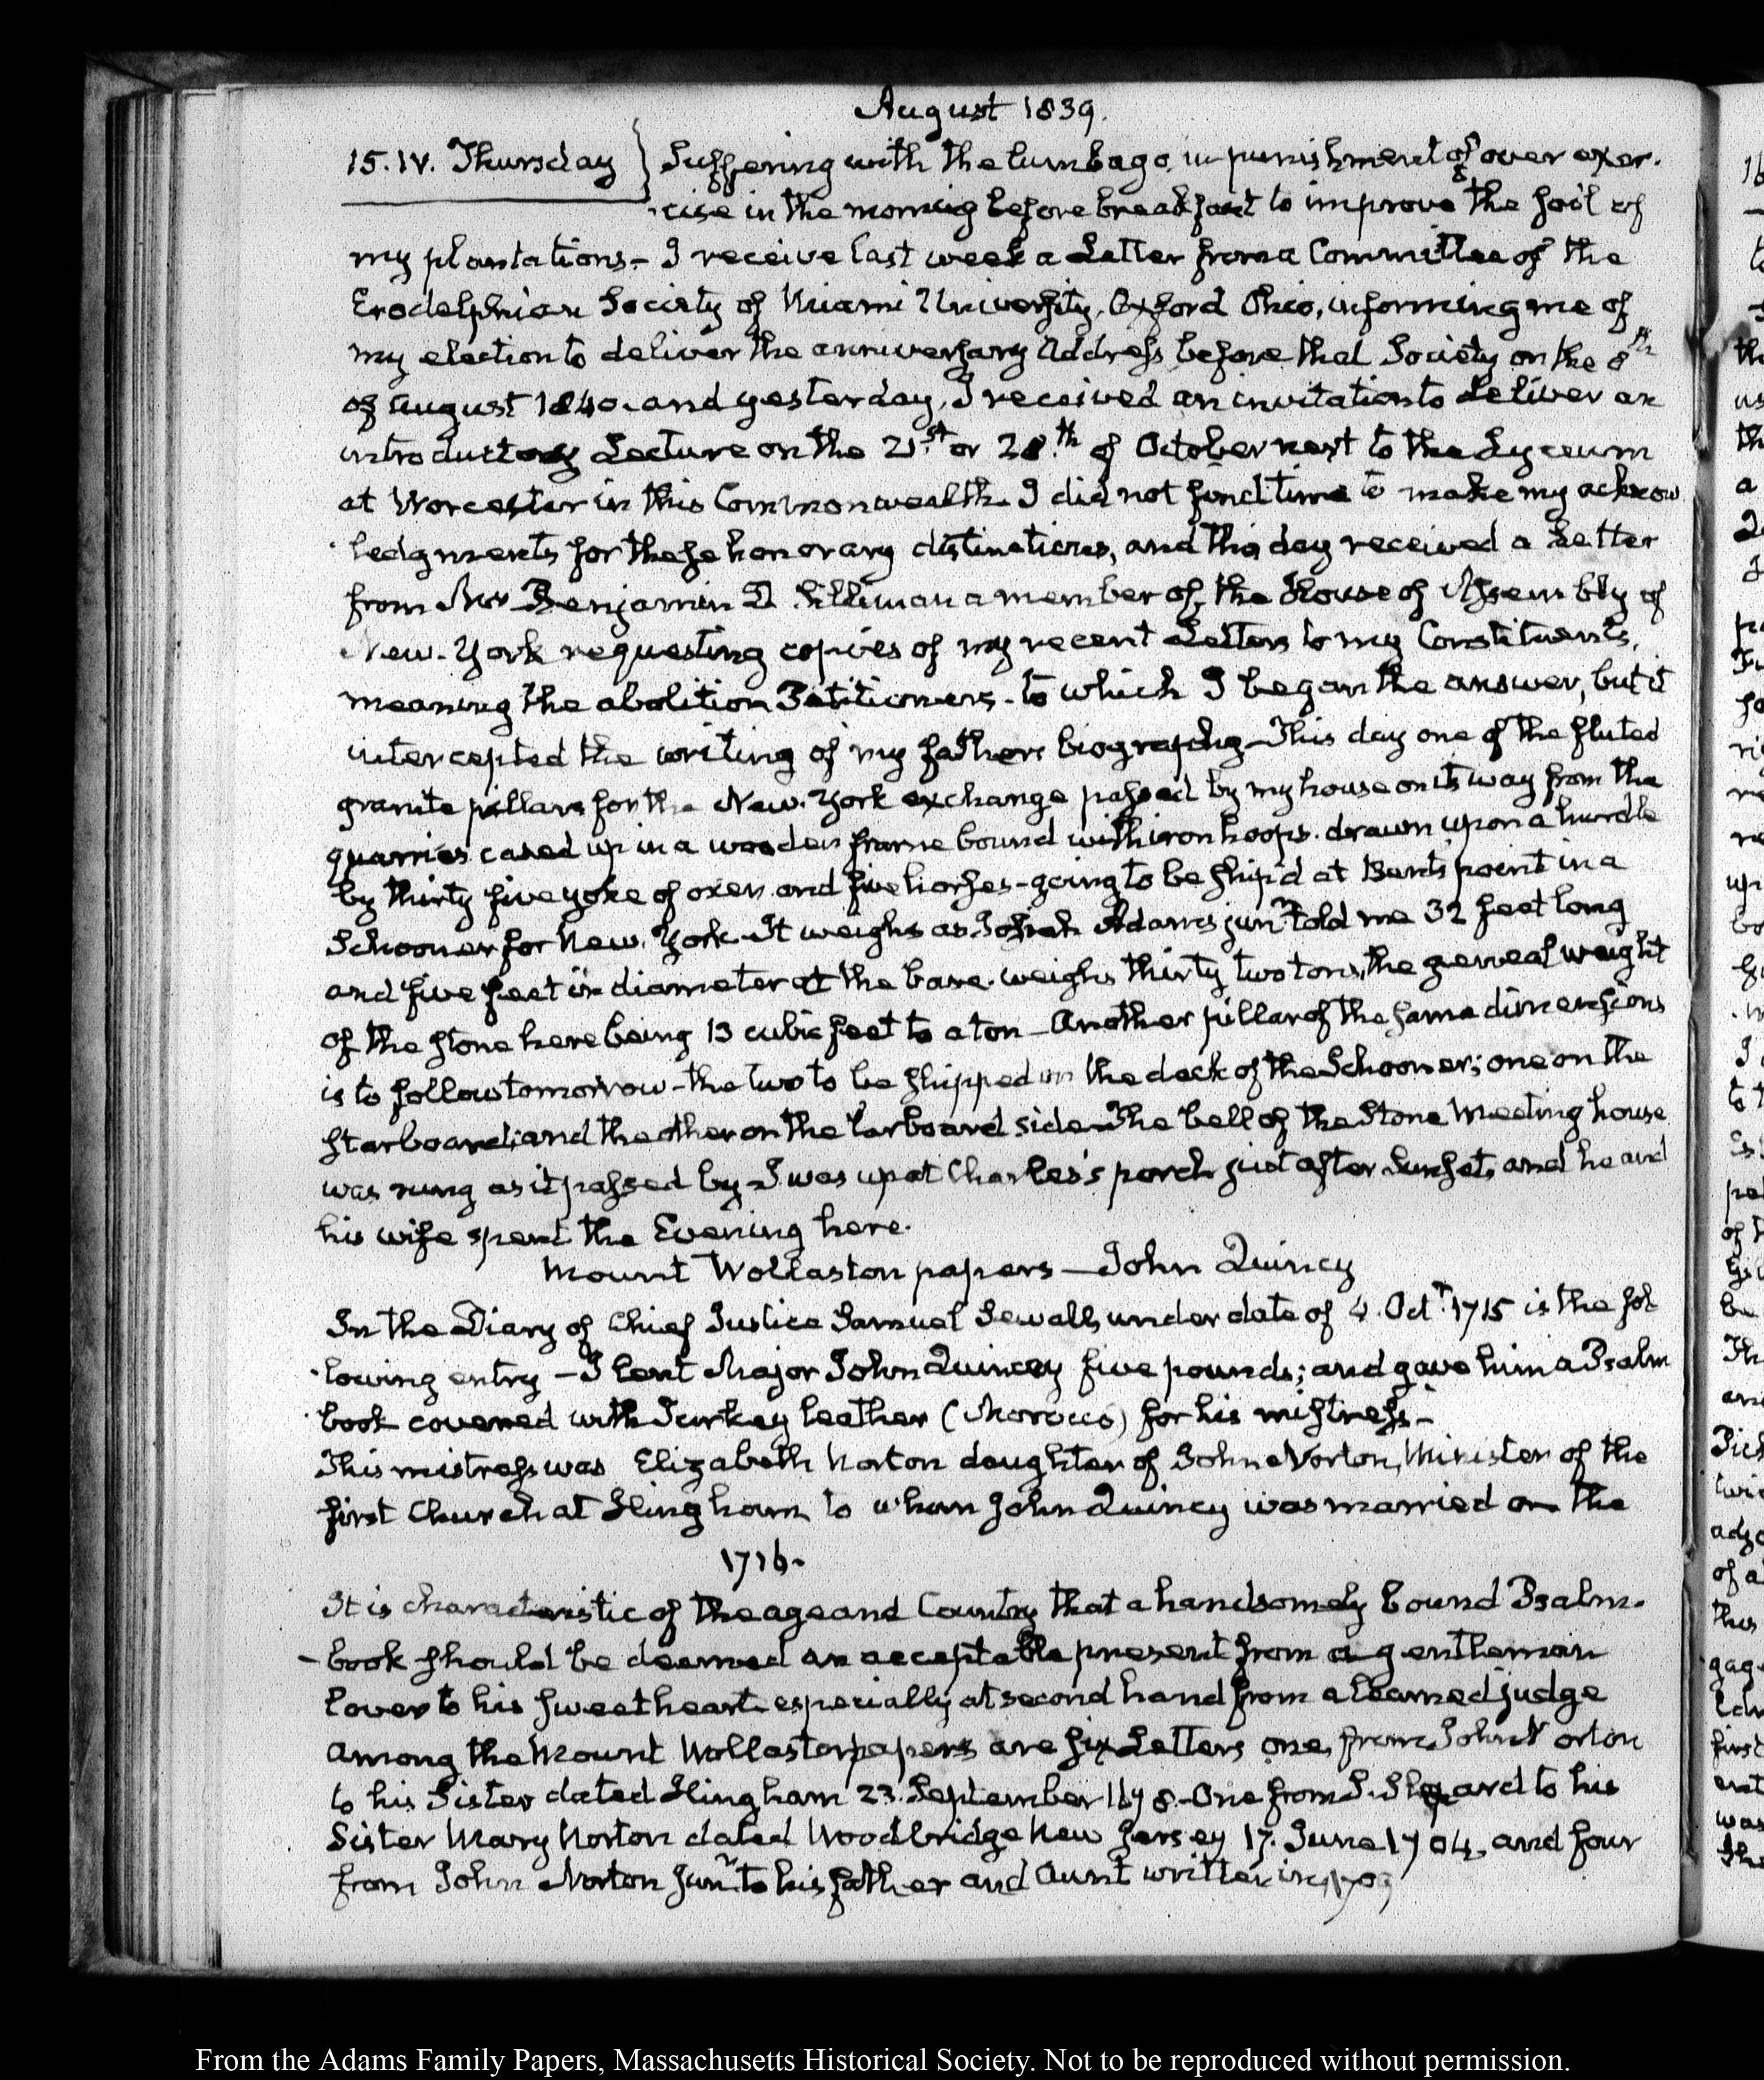 August 1839.
15. IV. Thursday } Suffering with the lumbago, in punishment of over exer-
-cise in the morning before breakfast to improve the soil of
my plantations- I receive last week a Letter from a Committee of the
Erodelphian Society of Miami University, Oxford Ohio, informing me of
my election to deliver the anniversary Address before that Society on the 8th
of August 1840. and yesterday, I received an invitation to deliver an
introductory Lecture on the 21st or 28th of October next to the Lyceum
at Worcester in this Commonwealth. I did not find time to make my acknow
ledgments for these honorary distinctions, and this day received a Letter
from Mr Benjamin D. Silliman a member of the House of Assembly of
New-York requesting copies of my recent Letters to my Constituents,
meaning the abolition Petitioners- to which I began the answer, but it
intercepted the writing of my fathers biography- This day one of the fluted
granite pillars for the New-York exchange passed by my house on its way from the
quarries cased up in a wooden frame bound with iron hoops. drawn upon a hurdle
by thirty five yoke of oxen and five horses- going to be ship'd at Bent's point in a
Schooner for New-York- It weighs as Josiah Adams junr told me 32 feet long
and five feet in diameter at the base. weighs thirty two tons, the general weight
of the stone here being 13 cubic feet to a ton- Another pillar of the same dimensions
is to follow tomorrow- the two to be shipped on the deck of the Schooner; one on the
starboard; and the other on the larboard side- The bell of the Stone Meeting house
was rung as it passed by- I was up at Charles's porch just after Sunset, and he and
his wife spent the Evening here.
Mount Wollaston papers- John Quincy
In the Diary of Chief Justice Samuel Sewall, under date of 4. Octr 1715 is the fol
-lowing entry- I lent Major John Quincey five pounds; and gave him a Psalm
book covered with Turkey leather (Morocco) for his mistress.-
This mistress was Elizabeth Norton daughter of John Norton, Minister of the
first Church at Hingham to whom John Quincy was married on the
1716-
It is characteristic of the age and Country that a handsomely bound Psalm-
-book should be deemed an acceptable present from a gentleman
lover to his sweetheart especially at second hand from a learned judge
among the Mount Wollaston papers are six Letters one from John Norton
to his Sister dated Hingham 23. September 1678- One from S. Shepard to his
Sister Mary Norton dated Woodbridge New Jersey 17. June 1704, and four
from John Norton junr to his father and Aunt written in
From the Adams Family Papers, Massachusetts Historical Society. Not to be reproduced without permission.